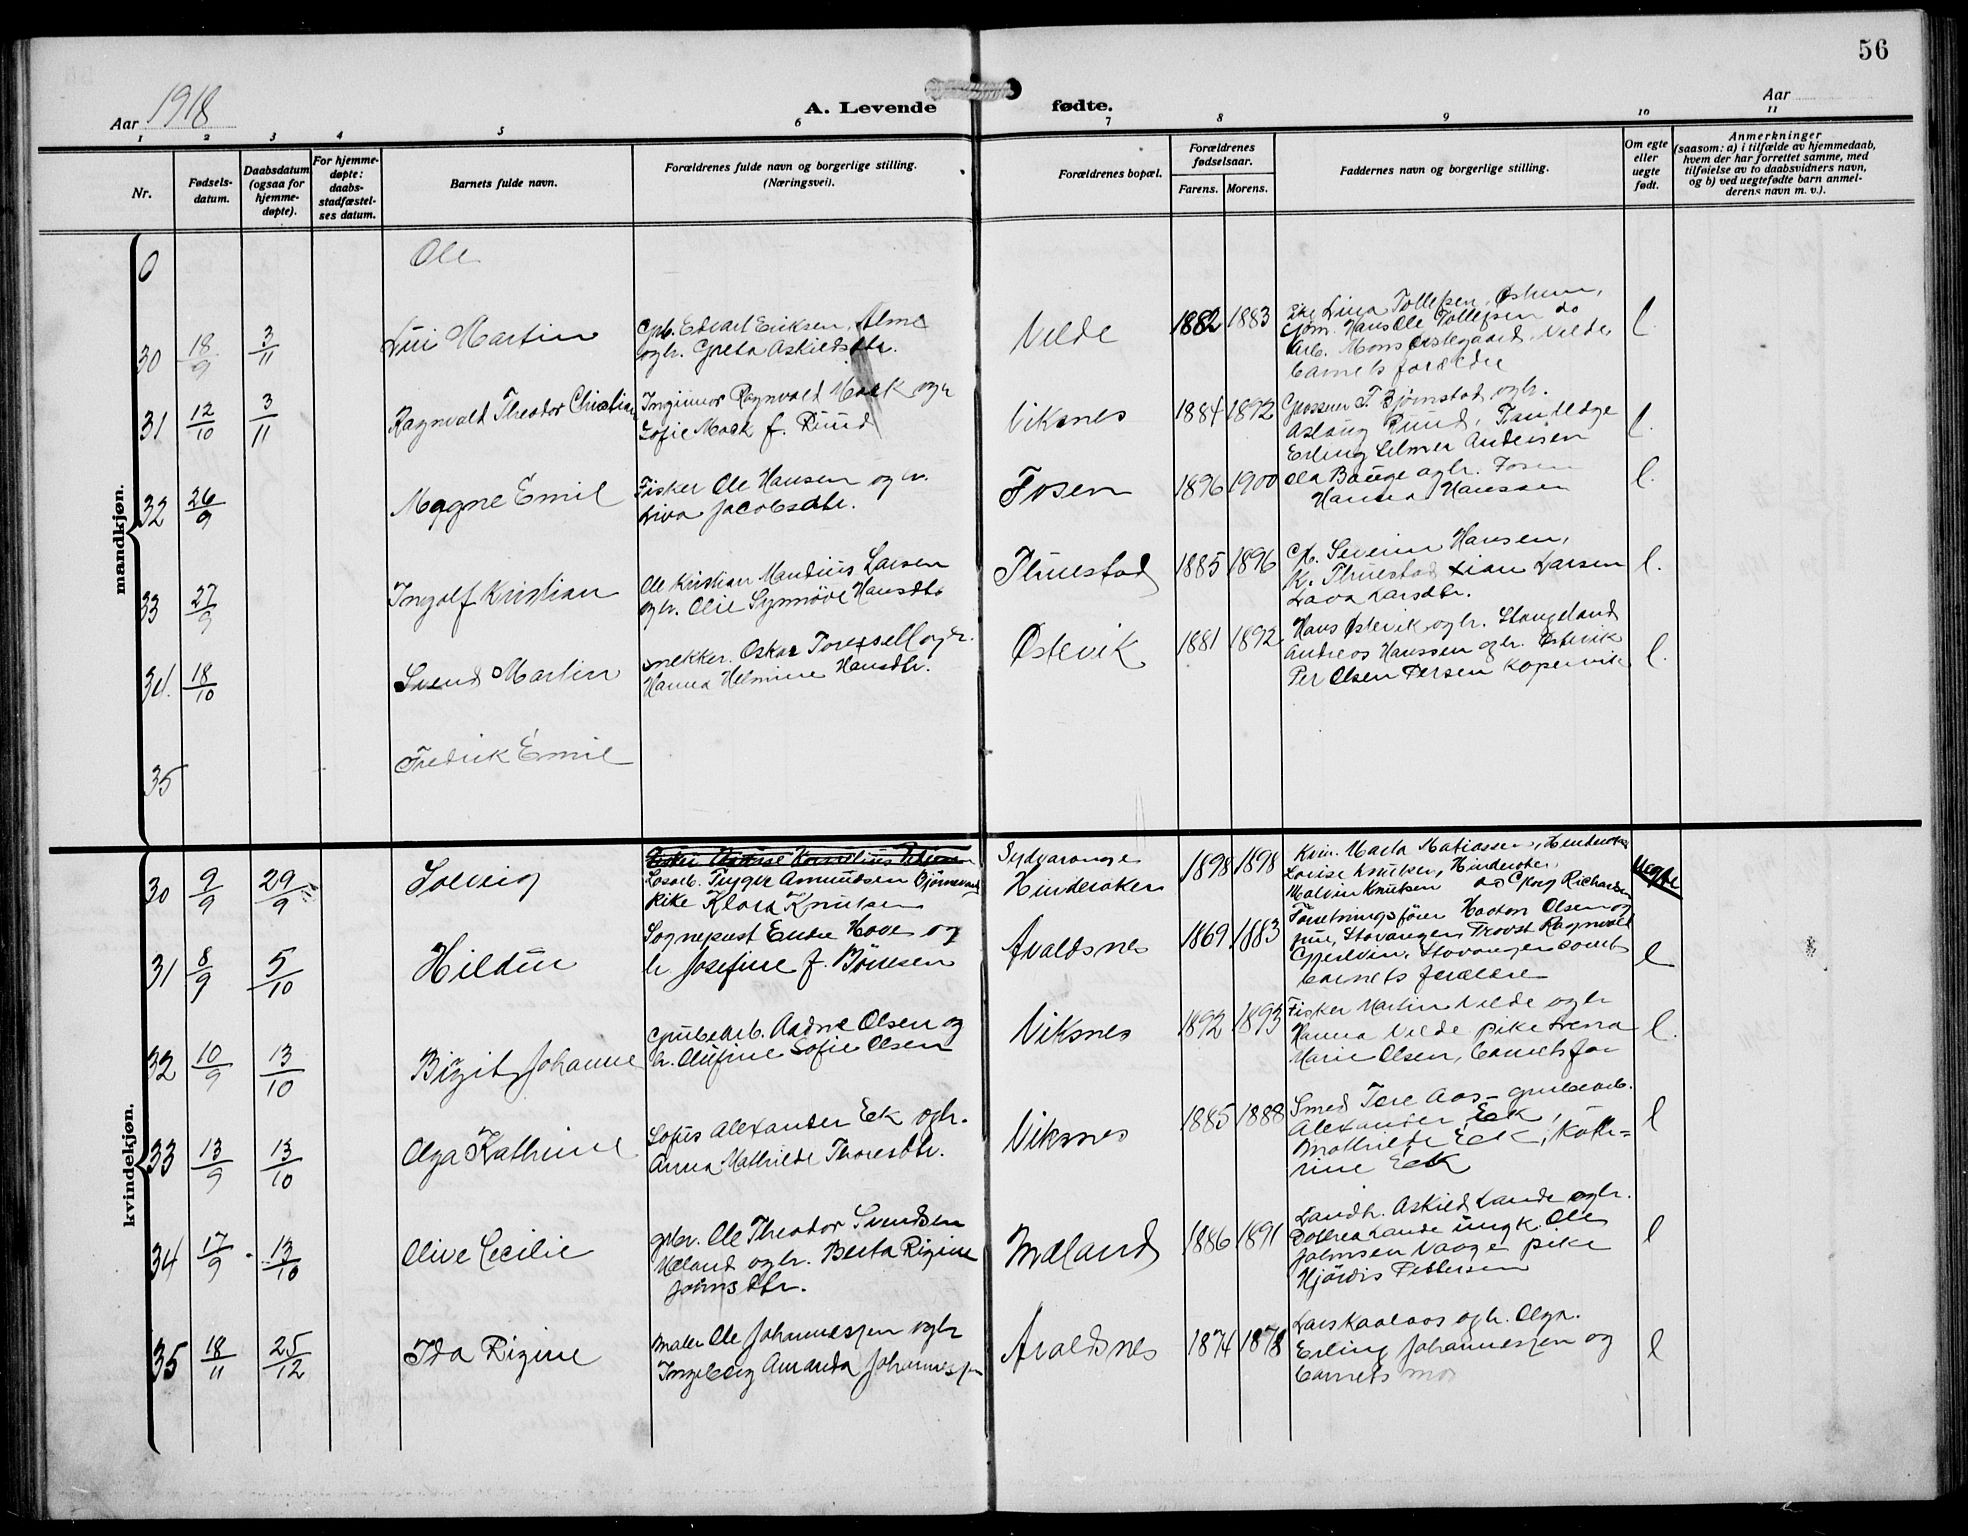 56
Aar 1918
A. Levende fødte.
Aar
1 2 3 4 5 6 7 8 9 10 11
Nr.
Fødsels-
datum.
Daabsdatum
(ogsaa for
hjemme-
døpte).
For hjemme-
døpte:
daabs-
stadfæstel-
ses datum.
Barnets fulde navn.
Forældrenes fulde navn og borgerlige stilling.
(Næringsvei).
Forældrenes bopæl.
Forældrenes
fødselsaar.
Farens. Morens.
Faddernes navn og borgerlige stilling.
Om egte
eller
uegte
født.
Anmerkninger
(saasom: a) i tilfælde av hjemmedaab,
hvem der har forrettet samme, med
tilføielse av to daabsvidners navn,
og b) ved uegtefødte barn anmel-
derens navn m. v.).
mandkjøn.
0 Ole
30 18/9 3/11 Martin
Edvart Eriksen, Alme
ogh. Greta Askildsdtr.
Velde 1882 1883
Lina Tollefsen, Østrem,
Hans Ole Tollefsen do
Arb. Mons Velde,
barnets forældre
l.
31 12/10 3/11 Ragnvald Theodor Christian
Inginiør Ragnvald Mork og h
Sofie Mork f. Ruud
Viksnes 1884 1892
T. Bjørnstad ogh.
Aslaug Ruud, Tandlæge
Erling Selmer Andersen
l.
32 26/9 Magne Emil
Fisker Ole Hansen og h.
Liva Jacobsdtr.
Fosen 1896 1900
Ola Bauge ogh. Fosen
Hanna Hanssen
l.
33 27/9 Ingolf Kristian
Ole Kristian Mandius Larsen
ogh. Olie Synnøve Hansdtr
Thuestad 1885 1896
Severin Hansen,
K. Thuestad Larsen
Lava Larsdtr.
l.
34. 18/10 Svend Martin
snekker. Oskar ogh.
Hanna Helmine Hansdtr.
Østevik 1881 1892
Hans Østevik ogh. Stangeland
Andreas Hanssen ogh. Østevik
Per Olsen Persen Kopervik
l.
35 Fredrik Emil
kvindekjøn.
30 9/9 29/9 Solveig
Løsarb. Trygve Asmundsen Bjørnevand
Pike Klara Knutsen
Sydvaranger
Hinderaker 1898 1898
Kvin. Marta Matiassen, Hinderaker
Lovise Knutsen, Hinderaker,
Malvin Knutsen do Georg Richardsen
Uegte
31 8/9 5/10 Hildur
Sogneprest Endre Hove og
h Josefine f. Börresen
Avaldsnes 1869 1883
Forretningsfører Haaton Olsen og
frue, Stavanger, Provst Ragnvald
Gjerlöw, Stavanger samt
barnets forældre
l
32 10/9 13/10 Birgit Johanne
Grubearb. Aadne Olsen og
h. Olufine Sofie Olsen
Viksnes 1892 1893
Fisker Martin Velde ogh
Hanna Velde pike Lrena
Marie Olsen, barnets far
l.
33 13/9 13/10 Olga Kathrine
Sofus Alexander Eek ogh.
Anna Mathilde Thoresdtr.
Viksnes 1885 1888
Smed Tore Aas - grubearb.
Alexander Eek,
Mathilde Eek, Kath-
rine Eek
l
34 17/9 13/10 Olive Cecilie
gbr. Ole Theodor Svendsen
Mæland ogh. Berta Rigine
Johnsdtr.
Mæland 1886 1891
Landh. Askild Lande ogh.
Dottrea Lande ungk. Ole
Johnsen Vaage pike
Hjördis Pettersen
l
35 18/11 25/12 Ida Rigine
Maler Ole Johannessen ogh
Ingeborg Amanda Johannessen
Avaldsnes 1874 1878
Lars Kaalaas ogh. Olga.
Erling Johannessen og
barnets mor
l